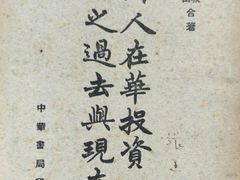 合著
人在華投資
之過去與現
中華書局